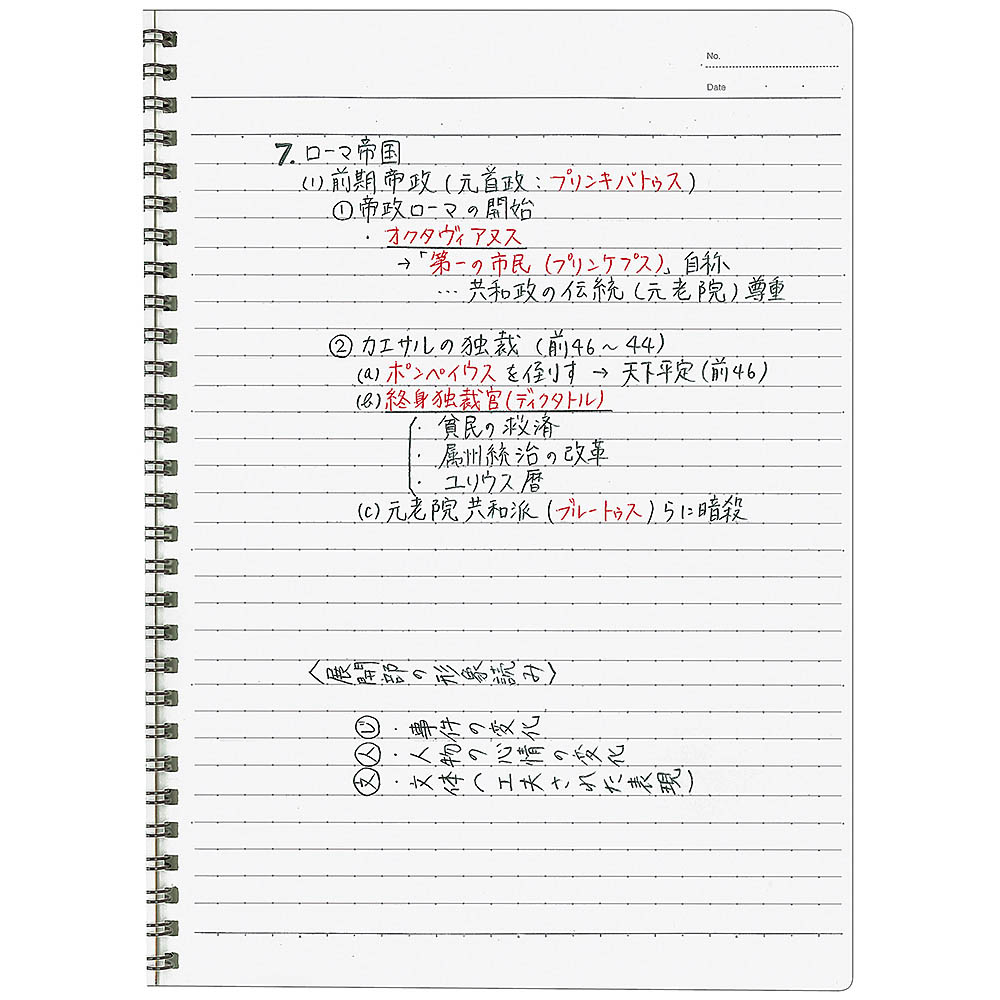 No.
Date
7. ローマ帝国
(1) 前期帝政 (元首政：プリンキパトゥス)
① 帝政ローマの開始
・オクタヴィアヌス
→「第一の市民 (プリンケプス)」自称
… 共和政の伝統 (元老院) 尊重
② カエサルの独裁 (前46～44)
(a) ポンペイウスを倒す → 天下平定 (前46)
(b) 終身独裁官 (ディクタトル)
・貧民の救済
・属州統治の改革
・ユリウス暦
(c) 元老院共和派 (ブルートゥス) らに暗殺
〈展開部の形象読み〉
じ・事件の変化
人・人物の心情の変化
文・文体(工夫された表現)